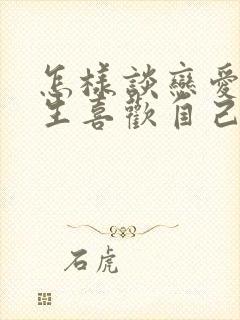 怎樣談戀愛
生喜歡自己
石虎